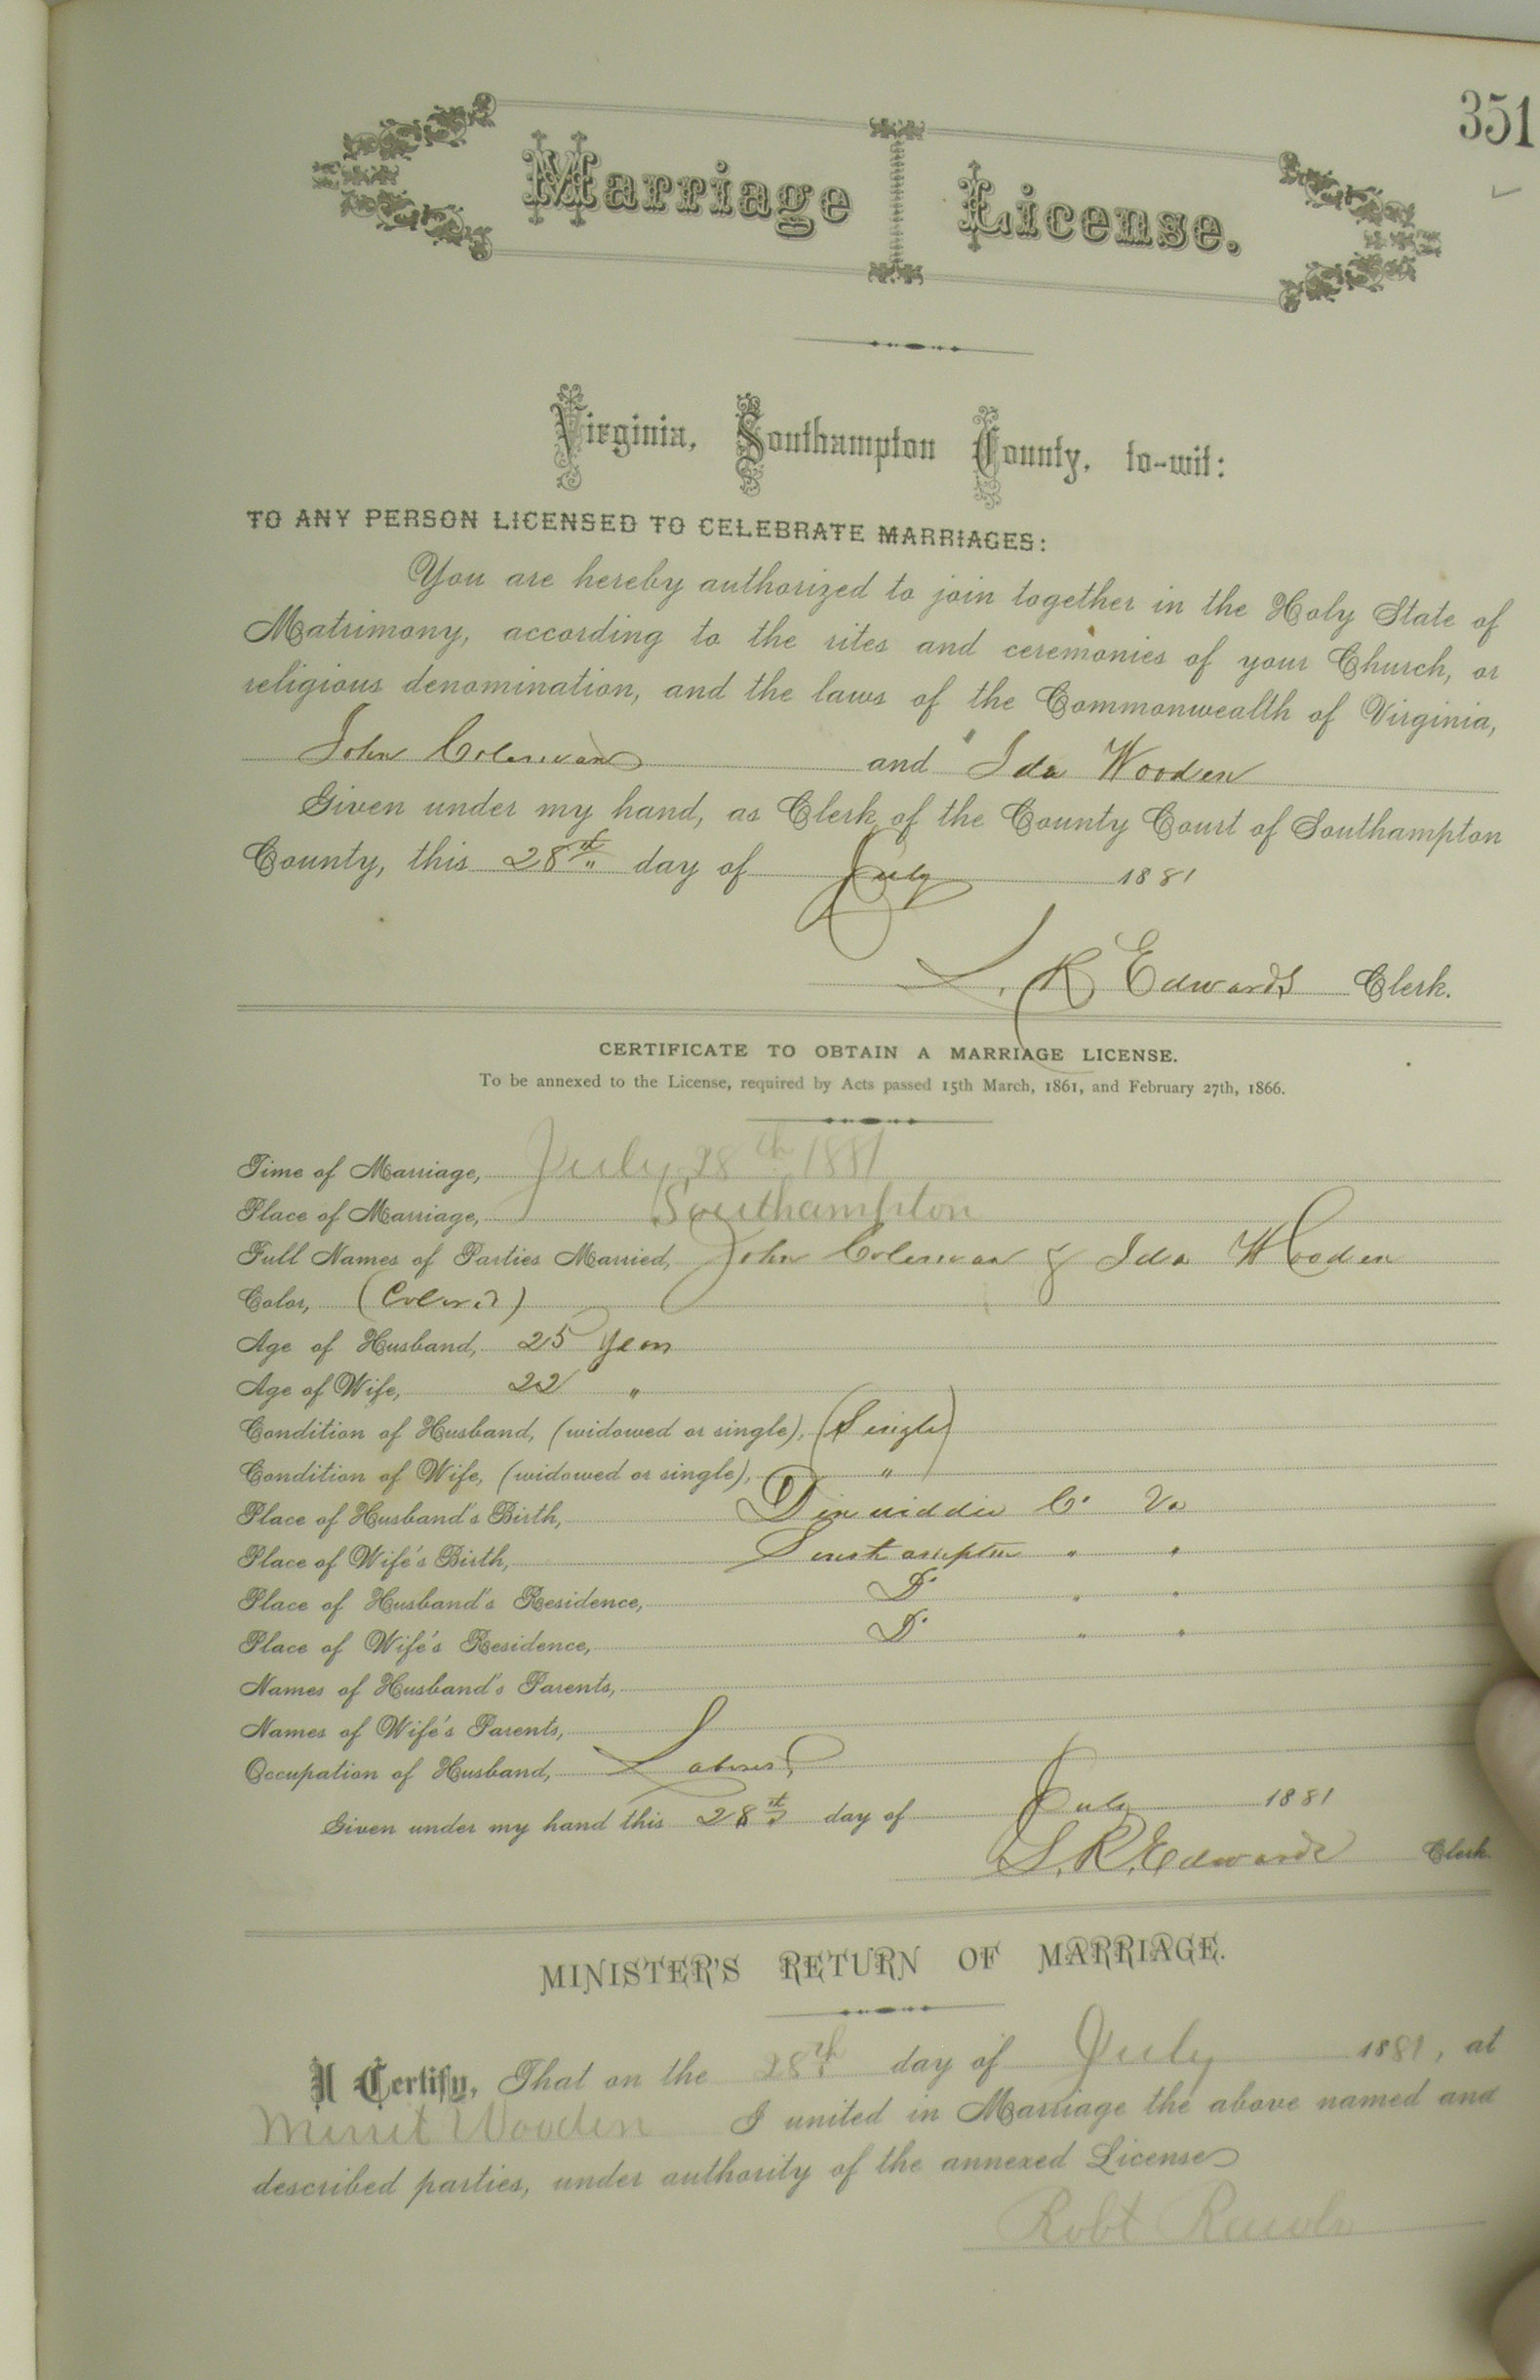 351
Marriage License.
Virginia, Southampton County, to-wit:
TO ANY PERSON LICENSED TO CELEBRATE MARRIAGES:
You are hereby authorized to join together in the Holy State of
Matrimony, according to the rites and ceremonies of your Church, or
religious denomination, and the laws of the Commonwealth of Virginia,
John Coleman and Ida Wooden
Given under my hand, as Clerk of the County Court of Southampton
County, this 28th day of July 1881
L. R Edwards Clerk.
CERTIFICATE TO OBTAIN A MARRIAGE LICENSE.
To be annexed to the License, required by Acts passed 15th March, 1861, and February 27th, 1866.
Time of Marriage, July 28th 1881
Place of Marriage, Southampton
Full Names of Parties Married, John Coleman & Ida Wooden
Color, (Colored)
Age of Husband, 25 Years
Age of Wife, 22 "
Condition of Husband, (widowed or single), (Single)
Condition of Wife, (widowed or single), "
Place of Husband's Birth, Dinwiddie Co Va
Place of Wife's Birth, Southampton " "
Place of Husband's Residence, Do " "
Place of Wife's Residence, Do " "
Names of Husband's Parents,
Names of Wife's Parents,
Occupation of Husband, Laborer
Given under my hand this 28th day of July 1881
L. R. Edwards Clerk
MINISTER'S RETURN OF MARRIAGE.
I Certify, That on the 28th day of July 1881, at
Merrit Wooden I united in Marriage the above named and
described parties, under authority of the annexed License
Robt